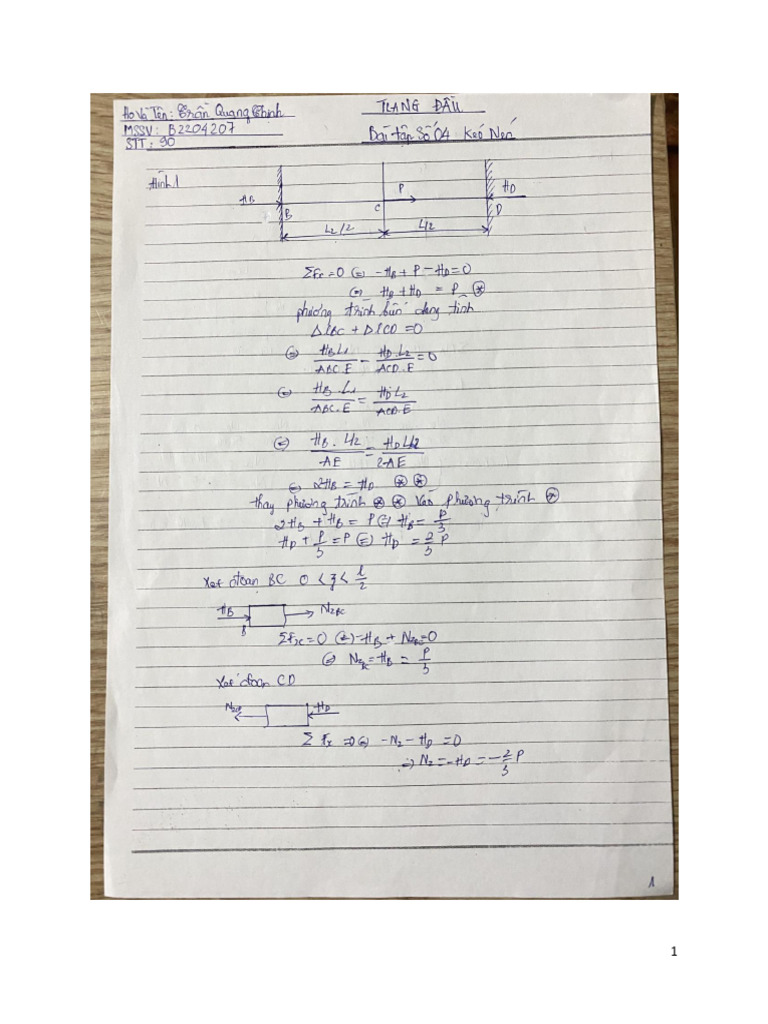 Họ Và Tên: Trần Quang Thịnh
TRANG ĐẦU
MSSV: B2204207
STT: 90
Bài tập Số 04 Kéo Nén
Hình 1
HB
B
C
P
HD
D
L2/2
L/2
ΣFx=0 ⇔ -HB + P - HD=0
⇔ HB + HD = P ⊛
phương trình biến dạng tĩnh
ΔlBC + ΔlCD =0
⇔ HB.L1/ABC.E - HD.L2/ACD.E =0
⇔ HB.L1/ABC.E = HD.L2/ACD.E
⇔ HB.L/2/AE = HD.L/2/2AE
⇔ 2HB = HD ⊛ ⊛
thay phương trình ⊛ ⊛ vào phương trình ⊛
2HB + HB = P ⇔ HB = P/3
HD + P/3 = P ⇔ HD = 2/3 P
Xét đoạn BC 0 < z < l/2
HB
B
NZBC
ΣFx=0 ⇔ -HB + NZBC=0
⇔ NZBC = HB = P/3
Xét đoạn CD
HD
ΣFx =0 ⇔ -NZ - HD =0
⇒ NZ = -HD = -2/3 P
1
1